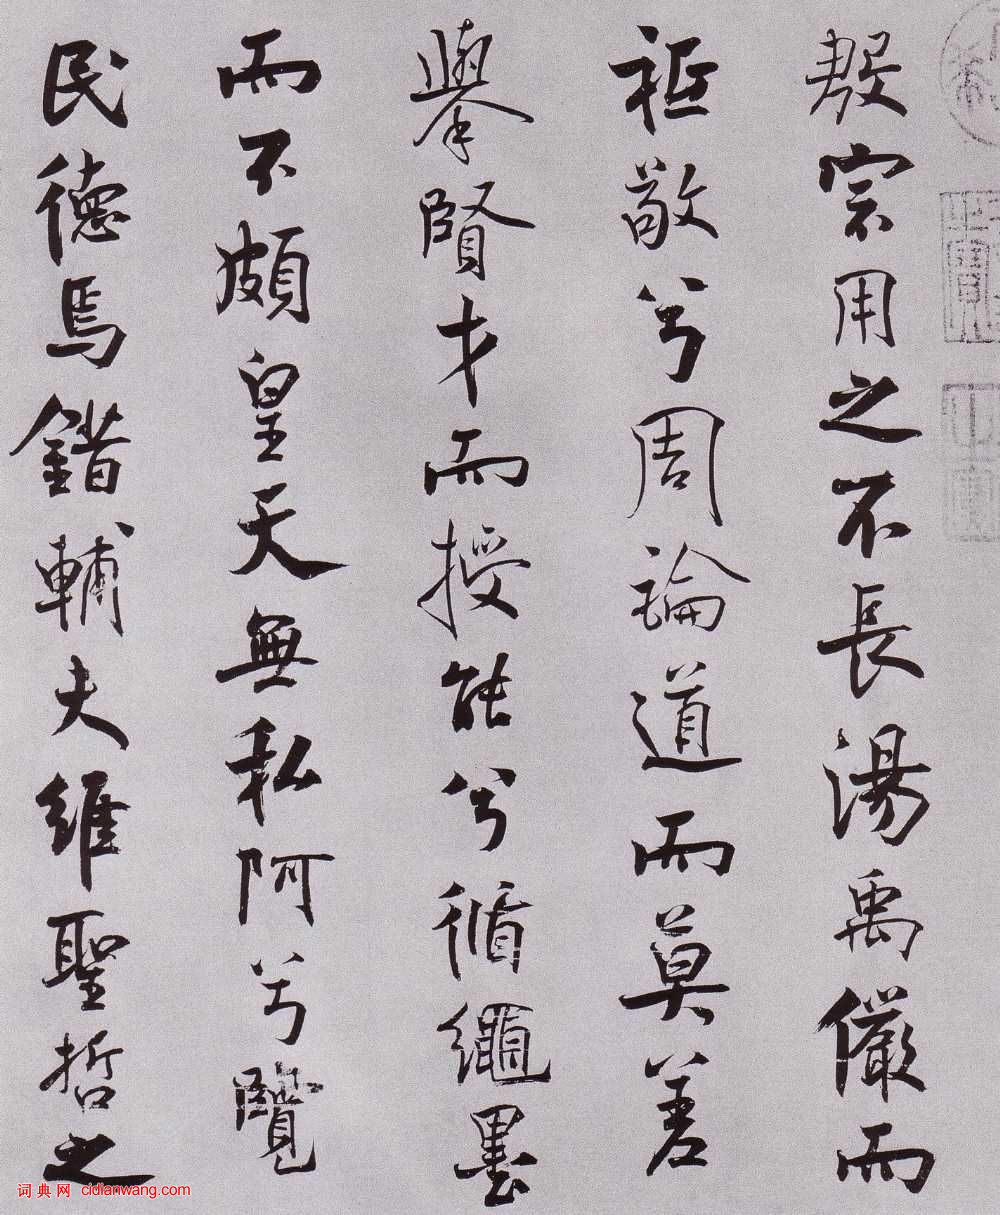 殷宗用之不長湯禹儼而
祗敬兮周論道而莫差
舉賢才而授能兮循繩墨
而不頗皇天無私阿兮覽
民德焉錯輔夫維聖哲之
词典网 cidianwang.com